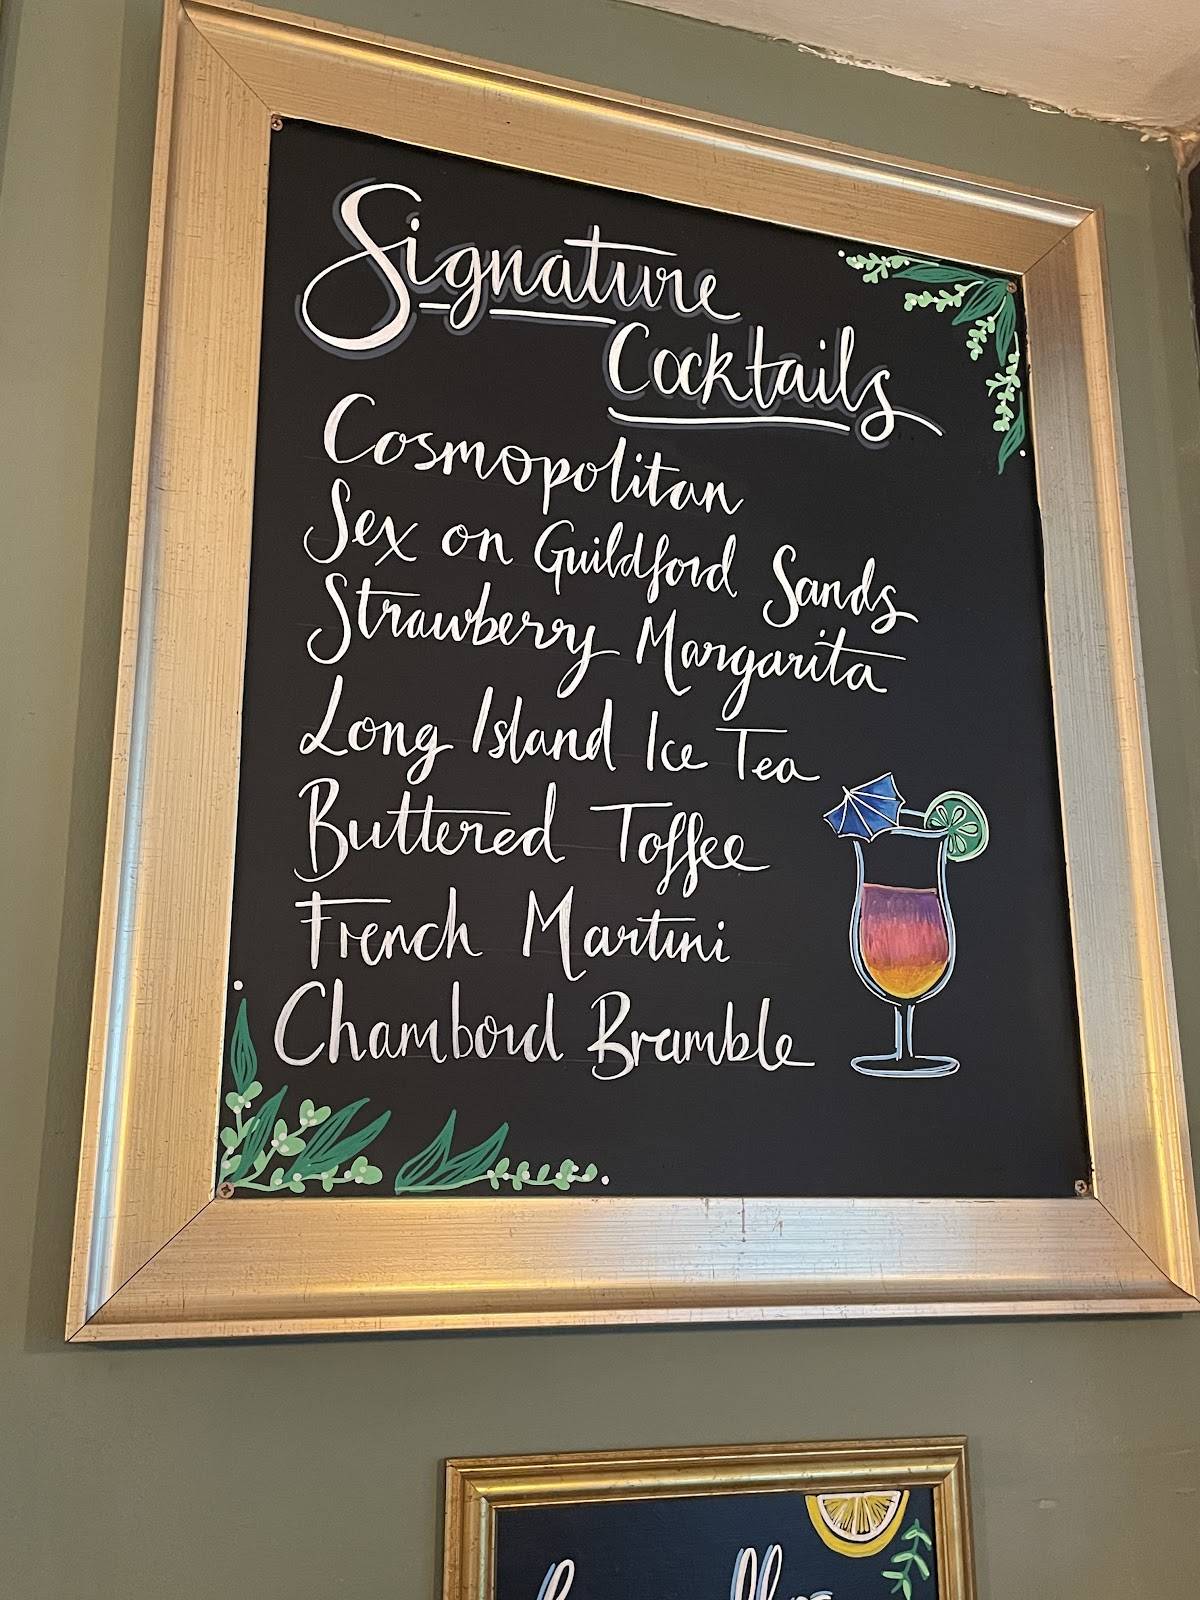 Signature
Cocktails
Cosmopolitan
Sex on Guildford Sands
Strawberry Margarita
Long Island Ice Tea
Buttered Toffee
French Martini
Chambord Bramble